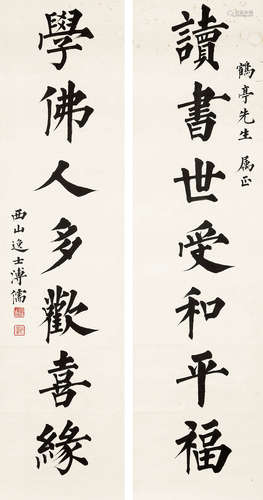 鶴亭先生属正
讀書世受和平福
學佛人多歡喜緣
西山逸士溥儒